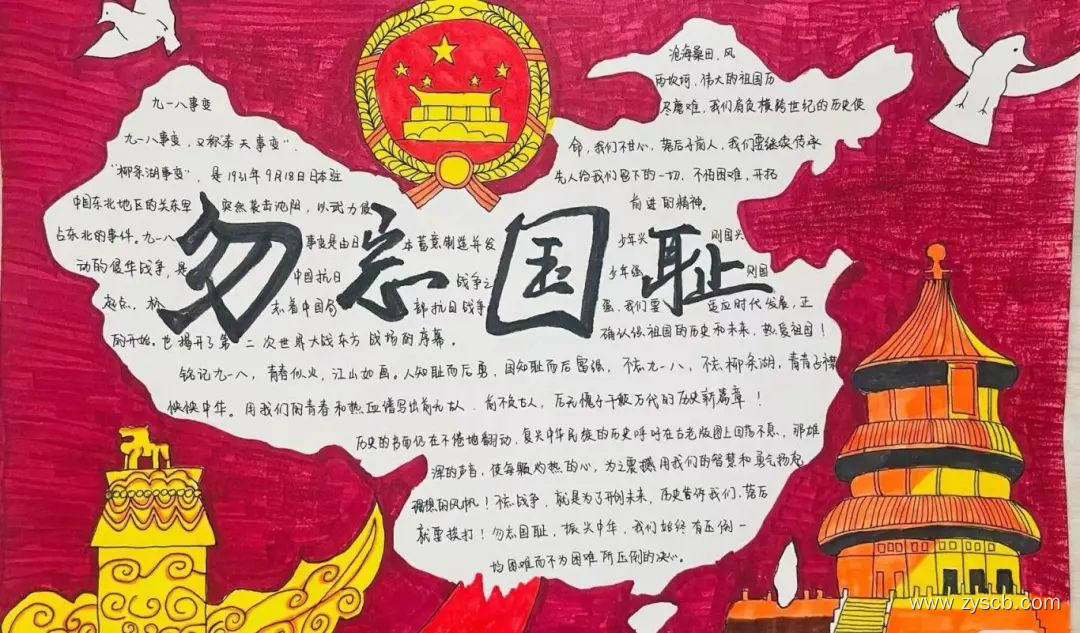 九一八事变
九一八事变，又称"奉天事变"、
"柳条湖事变"，是1931年9月18日日本驻
中国东北地区的关东军 突然袭击沈阳，以武力侵
占东北的事件。九一八 事变是由日 本蓄意制造并发
动的侵华战争，是 中国抗日 战争之
起点， 标 志着中国局 部抗日战争
的开始。也揭开了第二次世界大战东方战场的序幕。
勿忘国耻
沧海桑田，风
雨坎坷，伟大的祖国历
尽磨难，我们肩负横跨世纪的历史使
命，我们不甘心，落后于前人，我们要继续传承
先人给我们留下的一切，不怕困难，开拓
前进的精神。
少年兴 则国兴
少年强 则国
强，我们要 适应时代发展，正
确认识祖国的历史和未来，热爱祖国！
铭记九一八，青春似火，江山如画。人知耻而后勇，国知耻而后富强，不忘九一八，不忘柳条湖，青青子襟
泱泱中华。用我们的青春和热血谱写出前无古人，前不负古人，后无愧于千载万代的历史新篇章！
历史的书面仍在不倦地翻动，复兴中华民族的历史呼吁在古老版图上回荡不息，那雄
浑的声音，使每颗灼热的心，为之震撼用我们的智慧和勇气扬起
理想的风帆！不忘战争，就是为了开创未来，历史警诉我们，落后
就要挨打！勿忘国耻，振兴中华，我们始终有压倒一
切困难而不为困难所压倒的决心。
www.zyscb.com